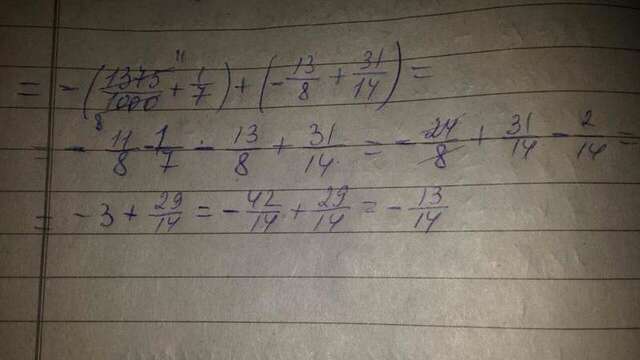 = -(1375/1000 + 1/7) + (-13/8 + 31/14) =
11
8
= -11/8 - 1/7 - 13/8 + 31/14 = -24/8 + 31/14 - 2/14 =
= -3 + 29/14 = -42/14 + 29/14 = -13/14